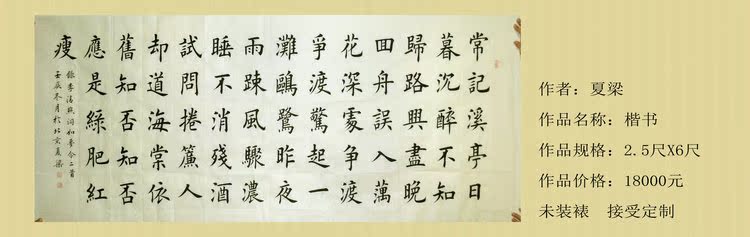 常記溪亭日
暮沉醉不知
歸路興盡晚
回舟誤入藕
花深處爭渡
爭渡驚起一
灘鷗鷺昨夜
雨踈風驟濃
睡不消殘酒
試問捲簾人
却道海棠依
舊知否知否
應是綠肥紅
瘦
錄李清照詞如夢令二首
壬辰冬月於北京夏梁
作者：夏梁
作品名称：楷书
作品规格：2.5尺X6尺
作品价格：18000元
未装裱 接受定制